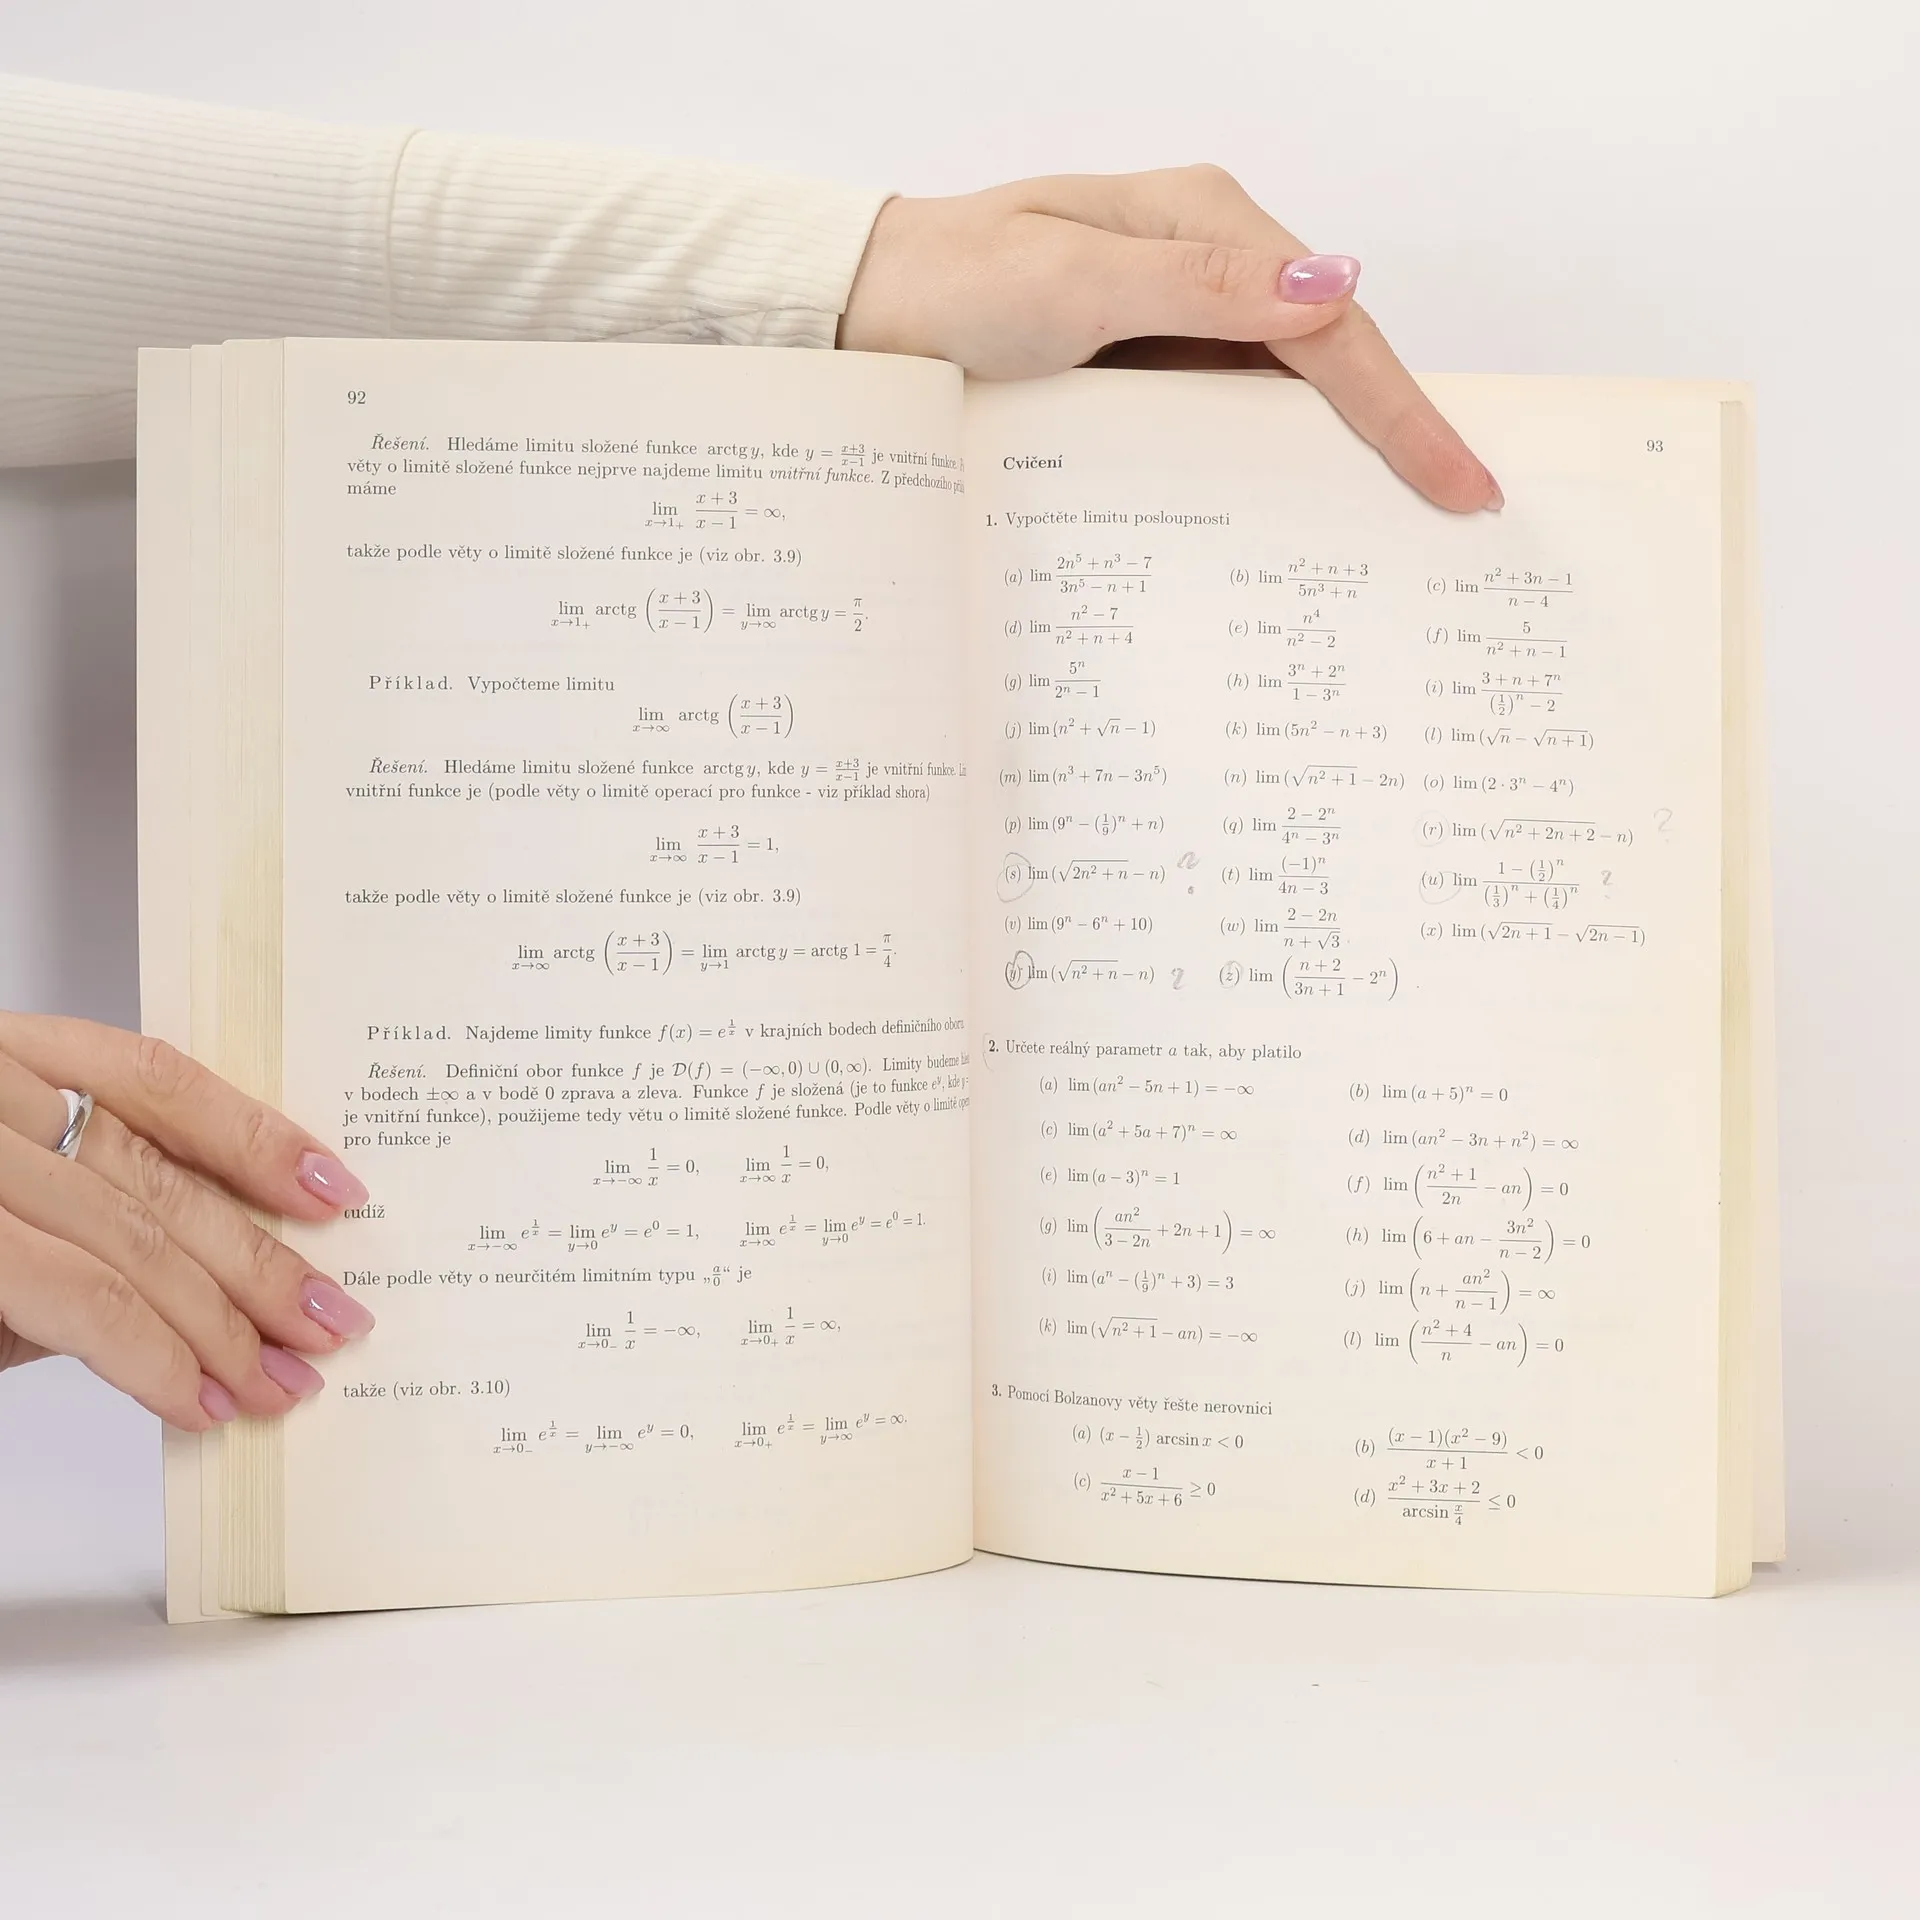 92
Řešení. Hledáme limitu složené funkce arctg y, kde y = \frac{x+3}{x−1} je vnitřní funkce.
věty o limitě složené funkce nejprve najdeme limitu vnitřní funkce. Z předchozího
máme
lim_{x→1+} \frac{x+3}{x−1} = ∞,
takže podle věty o limitě složené funkce je (viz obr. 3.9)
lim_{x→1+} arctg (\frac{x+3}{x−1}) = lim_{y→∞} arctg y = \frac{π}{2}.
Příklad. Vypočteme limitu
lim_{x→∞} arctg (\frac{x+3}{x−1})
Řešení. Hledáme limitu složené funkce arctg y, kde y = \frac{x+3}{x−1} je vnitřní funkce.
vnitřní funkce je (podle věty o limitě operací pro funkce - viz příklad shora)
lim_{x→∞} \frac{x+3}{x−1} = 1,
takže podle věty o limitě složené funkce je (viz obr. 3.9)
lim_{x→∞} arctg (\frac{x+3}{x−1}) = lim_{y→1} arctg y = arctg 1 = \frac{π}{4}.
Příklad. Najdeme limity funkce f(x) = e^{\frac{1}{x}} v krajních bodech definičního
Řešení. Definiční obor funkce f je D(f) = (−∞, 0) ∪ (0, ∞). Limity budeme
v bodech ±∞ a v bodě 0 zprava a zleva. Funkce f je složená (je to funkce e^y, kde y =
je vnitřní funkce), použijeme tedy větu o limitě složené funkce. Podle věty o limitě
pro funkce je
lim_{x→−∞} \frac{1}{x} = 0, lim_{x→∞} \frac{1}{x} = 0,
tudíž
lim_{x→−∞} e^{\frac{1}{x}} = lim_{y→0} e^y = e^0 = 1, lim_{x→∞} e^{\frac{1}{x}} = lim_{y→0} e^y = e^0 = 1.
Dále podle věty o neurčitém limitním typu „\frac{a}{0}“ je
lim_{x→0−} \frac{1}{x} = −∞, lim_{x→0+} \frac{1}{x} = ∞,
takže (viz obr. 3.10)
lim_{x→0−} e^{\frac{1}{x}} = lim_{y→−∞} e^y = 0, lim_{x→0+} e^{\frac{1}{x}} = lim_{y→∞} e^y = ∞.
93
Cvičení
1. Vypočtěte limitu posloupnosti
(a) lim \frac{2n^5 + n^3 − 7}{3n^5 − n + 1} (b) lim \frac{n^2 + n + 3}{5n^3 + n} (c) lim \frac{n^2 + 3n − 1}{n − 4}
(d) lim \frac{n^2 − 7}{n^2 + n + 4} (e) lim \frac{n^4}{n^2 − 2} (f) lim \frac{5}{n^2 + n − 1}
(g) lim \frac{5^n}{2^n − 1} (h) lim \frac{3^n + 2^n}{1 − 3^n} (i) lim \frac{3 + n + 7^n}{(\frac{1}{2})^n − 2}
(j) lim (n^2 + √n − 1) (k) lim (5n^2 − n + 3) (l) lim (√n − √{n+1})
(m) lim (n^3 + 7n − 3n^5) (n) lim (√{n^2 + 1} − 2n) (o) lim (2 · 3^n − 4^n)
(p) lim (9^n − (\frac{1}{9})^n + n) (q) lim \frac{2 − 2^n}{4^n − 3^n} (r) lim (√{n^2 + 2n + 2} − n) ?
(s) lim (√{2n^2 + n} − n) ? (t) lim \frac{(−1)^n}{4n − 3} (u) lim \frac{1 − (\frac{1}{2})^n}{(\frac{1}{3})^n + (\frac{1}{4})^n} ?
(v) lim (9^n − 6^n + 10) (w) lim \frac{2 − 2n}{n + √3} (x) lim (√{2n + 1} − √{2n − 1})
(y) lim (√{n^2 + n} − n) ? (z) lim (\frac{n + 2}{3n + 1} − 2^n)
2. Určete reálný parametr a tak, aby platilo
(a) lim (an^2 − 5n + 1) = −∞ (b) lim (a + 5)^n = 0
(c) lim (a^2 + 5a + 7)^n = ∞ (d) lim (an^2 − 3n + n^2) = ∞
(e) lim (a − 3)^n = 1 (f) lim (\frac{n^2 + 1}{2n} − an) = 0
(g) lim (\frac{an^2}{3 − 2n} + 2n + 1) = ∞ (h) lim (6 + an − \frac{3n^2}{n − 2}) = 0
(i) lim (a^n − (\frac{1}{9})^n + 3) = 3 (j) lim (n + \frac{an^2}{n − 1}) = ∞
(k) lim (√{n^2 + 1} − an) = −∞ (l) lim (\frac{n^2 + 4}{n} − an) = 0
3. Pomocí Bolzanovy věty řešte nerovnici
(a) (x − \frac{1}{2}) arcsin x < 0 (b) \frac{(x − 1)(x^2 − 9)}{x + 1} < 0
(c) \frac{x − 1}{x^2 + 5x + 6} ≥ 0 (d) \frac{x^2 + 3x + 2}{arcsin \frac{x}{4}} ≤ 0